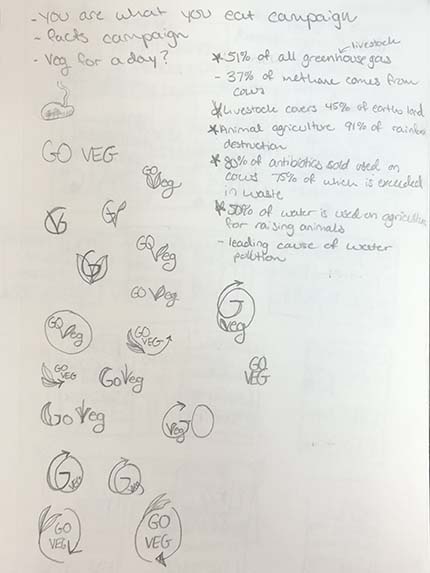 - You are what you eat campaign
- facts campaign
- Veg for a day?
livestock
* 51% of all greenhouse gas
- 37% of methane comes from
cows
* Livestock covers 45% of earths land
* Animal agriculture 91% of
destruction
* 80% of antibiotics sold used on
cows 75% of which is
in waste
* 50% of water is used on
for raising animals
- leading cause of water
pollution
GO VEG
GO Veg
V
G
GO Veg
G
GO Veg
G Veg
GO Veg
GO VEG
GO VEG
GO VEG
GO Veg
GO Veg
G Veg
G Veg
G Veg
GO
VEG
GO
VEG